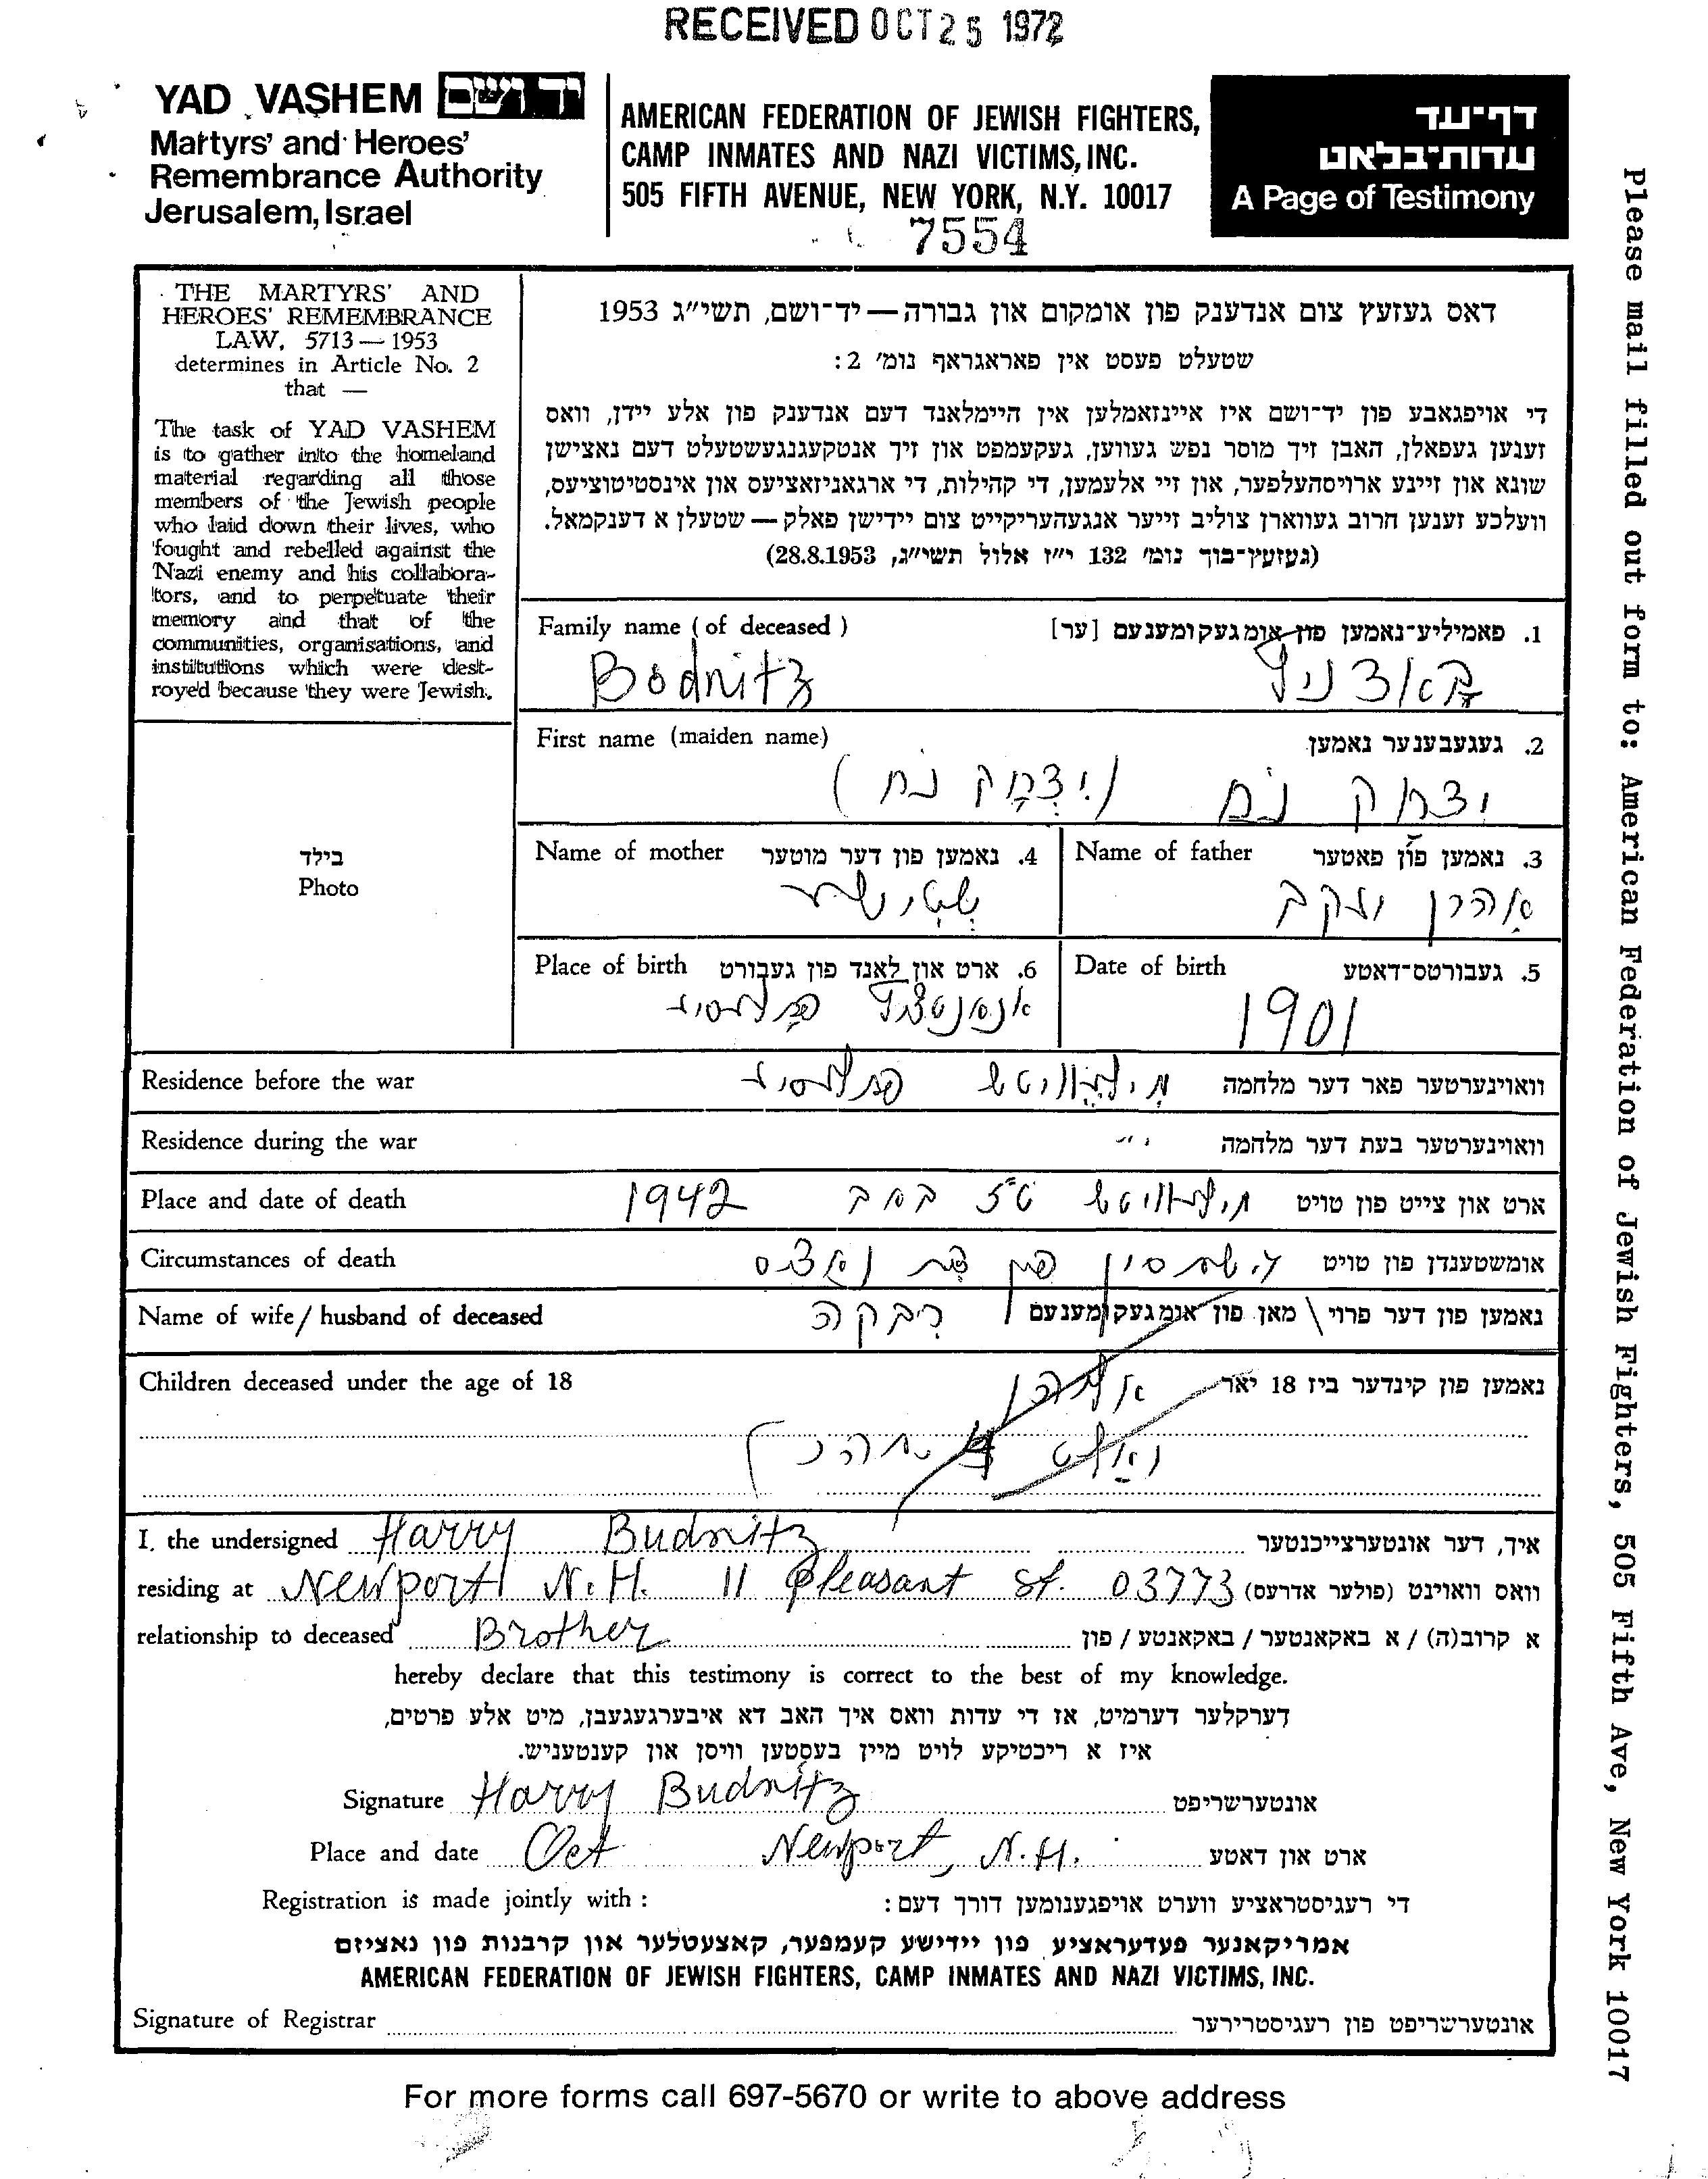 RECEIVED OCT 25 1972
YAD VASHEM יד ושם
Martyrs' and Heroes'
Remembrance Authority
Jerusalem, Israel
AMERICAN FEDERATION OF JEWISH FIGHTERS,
CAMP INMATES AND NAZI VICTIMS, INC.
505 FIFTH AVENUE, NEW YORK, N.Y. 10017
7554
דף־עד
עדות־בלאט
A Page of Testimony
THE MARTYRS' AND
HEROES' REMEMBRANCE
LAW, 5713 — 1953
determines in Article No. 2
that —
The task of YAD VASHEM
is to gather into the homeland
material regarding all those
members of the Jewish people
who laid down their lives, who
fought and rebelled against the
Nazi enemy and his collabora-
tors, and to perpetuate their
memory and that of the
communities, organisations, and
institutions which were dest-
royed because they were Jewish.
דאס געזעץ צום אנדענק פון אומקום און גבורה — יד־ושם, תשי״ג 1953
שטעלט פעסט אין פאראגראף נומ׳ 2:
די אויפגאבע פון יד־ושם איז איינזאמלען אין היימלאנד דעם אנדענק פון אלע יידן, וואס
זענען געפאלן, האבן זיך מוסר נפש געווען, געקעמפט און זיך אנטקעגנגעשטעלט דעם נאצישן
שונא און זיינע ארויסהעלפער, און זיי אלעמען, די קהילות, די ארגאניזאציעס און אינסטיטוציעס,
וועלכע זענען חרוב געווארן צוליב זייער אנגעהעריקייט צום יידישן פאלק — שטעלן א דענקמאל.
(געזעץ־בוך נומ׳ 132 י״ז אלול תשי״ג, 28.8.1953)
Family name (of deceased) 1. פאמיליע־נאמען פון אומגעקומענעם [ער]
Bodnitz
First name (maiden name) 2. געגעבענער נאמען
יצחק נח (יצחק נח)
בילד
Photo
Name of mother 4. נאמען פון דער מוטער
Name of father 3. נאמען פון פאטער
אהרן יעקב
Place of birth 6. ארט און לאנד פון געבורט
Date of birth 5. געבורטס־דאטע
1901
Residence before the war וואוינערטער פאר דער מלחמה
Residence during the war וואוינערטער בעת דער מלחמה
Place and date of death ארט און צייט פון טויט 1942
Circumstances of death אומשטענדן פון טויט
Name of wife / husband of deceased נאמען פון דער פרוי \ מאן פון אומגעקומענעם רבקה
Children deceased under the age of 18 נאמען פון קינדער ביז 18 יאר
I, the undersigned Harry Budnitz איך, דער אונטערצייכנטער
residing at Newport N.H. 11 Pleasant St. 03773 וואס וואוינט (פולער אדרעס)
relationship to deceased Brother א קרוב(ה) / באקאנטער / באקאנטע / פון
hereby declare that this testimony is correct to the best of my knowledge.
דערקלער דערמיט, אז די עדות וואס איך האב דא איבערגעגעבן, מיט אלע פרטים,
איז א ריכטיקע לויט מיין בעסטען וויסן און קענטעניש.
Signature Harry Budnitz אונטערשריפט
Place and date Oct Newport, N.H. ארט און דאטע
Registration is made jointly with : די רעגיסטראציע ווערט אויפגענומען דורך דעם:
אמריקאנער פעדעראציע פון יידישע קעמפער, קאצעטלער און קרבנות פון נאציזם
AMERICAN FEDERATION OF JEWISH FIGHTERS, CAMP INMATES AND NAZI VICTIMS, INC.
Signature of Registrar אונטערשריפט פון רעגיסטרירער
For more forms call 697-5670 or write to above address
Please mail filled out form to: American Federation of Jewish Fighters, 505 Fifth Ave, New York 10017